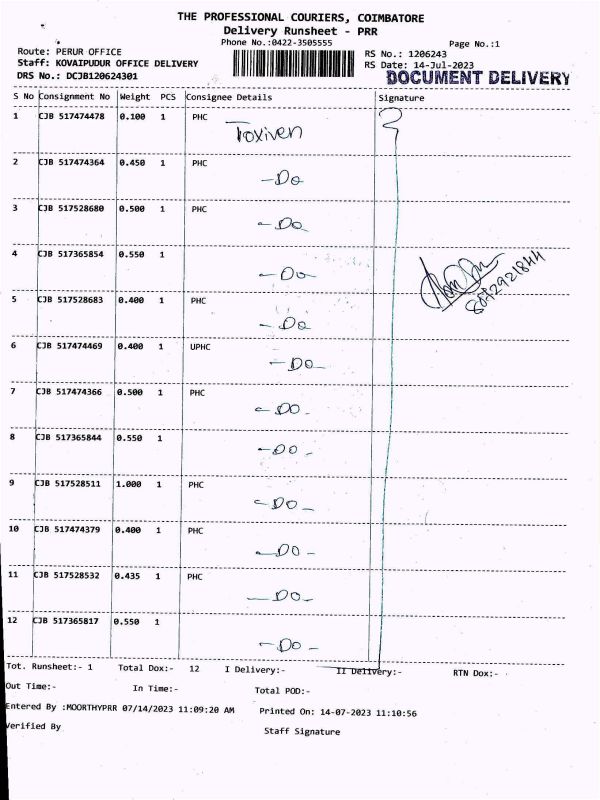 THE PROFESSIONAL COURIERS, COIMBATORE
Delivery Runsheet - PRR
Phone No.:0422-3505555
Page No.:1
Route: PERUR OFFICE
RS No.: 1206243
Staff: KOVAIPUDUR OFFICE DELIVERY
RS Date: 14-Jul-2023
DRS No.: DCJB120624301
DOCUMENT DELIVERY
S No Consignment No Weight PCS Consignee Details Signature
1 CJB 517474478 0.100 1 PHC
Toxiven
2 CJB 517474364 0.450 1 PHC
-Do
3 CJB 517528680 0.500 1 PHC
-Do
4 CJB 517365854 0.550 1
-Do
5 CJB 517528683 0.400 1 PHC
-Do
6 CJB 517474469 0.400 1 UPHC
-Do-
7 CJB 517474366 0.500 1 PHC
-DO-
8 CJB 517365844 0.550 1
-DO-
9 CJB 517528511 1.000 1 PHC
-DO-
10 CJB 517474379 0.400 1 PHC
-DO-
11 CJB 517528532 0.435 1 PHC
-DO-
12 CJB 517365817 0.550 1
-DO-
Tot. Runsheet:- 1 Total Dox:- 12 I Delivery:- II Delivery:- RTN Dox:-
Out Time:- In Time:- Total POD:-
Entered By :MOORTHYPRR 07/14/2023 11:09:20 AM Printed On: 14-07-2023 11:10:56
Verified By Staff Signature